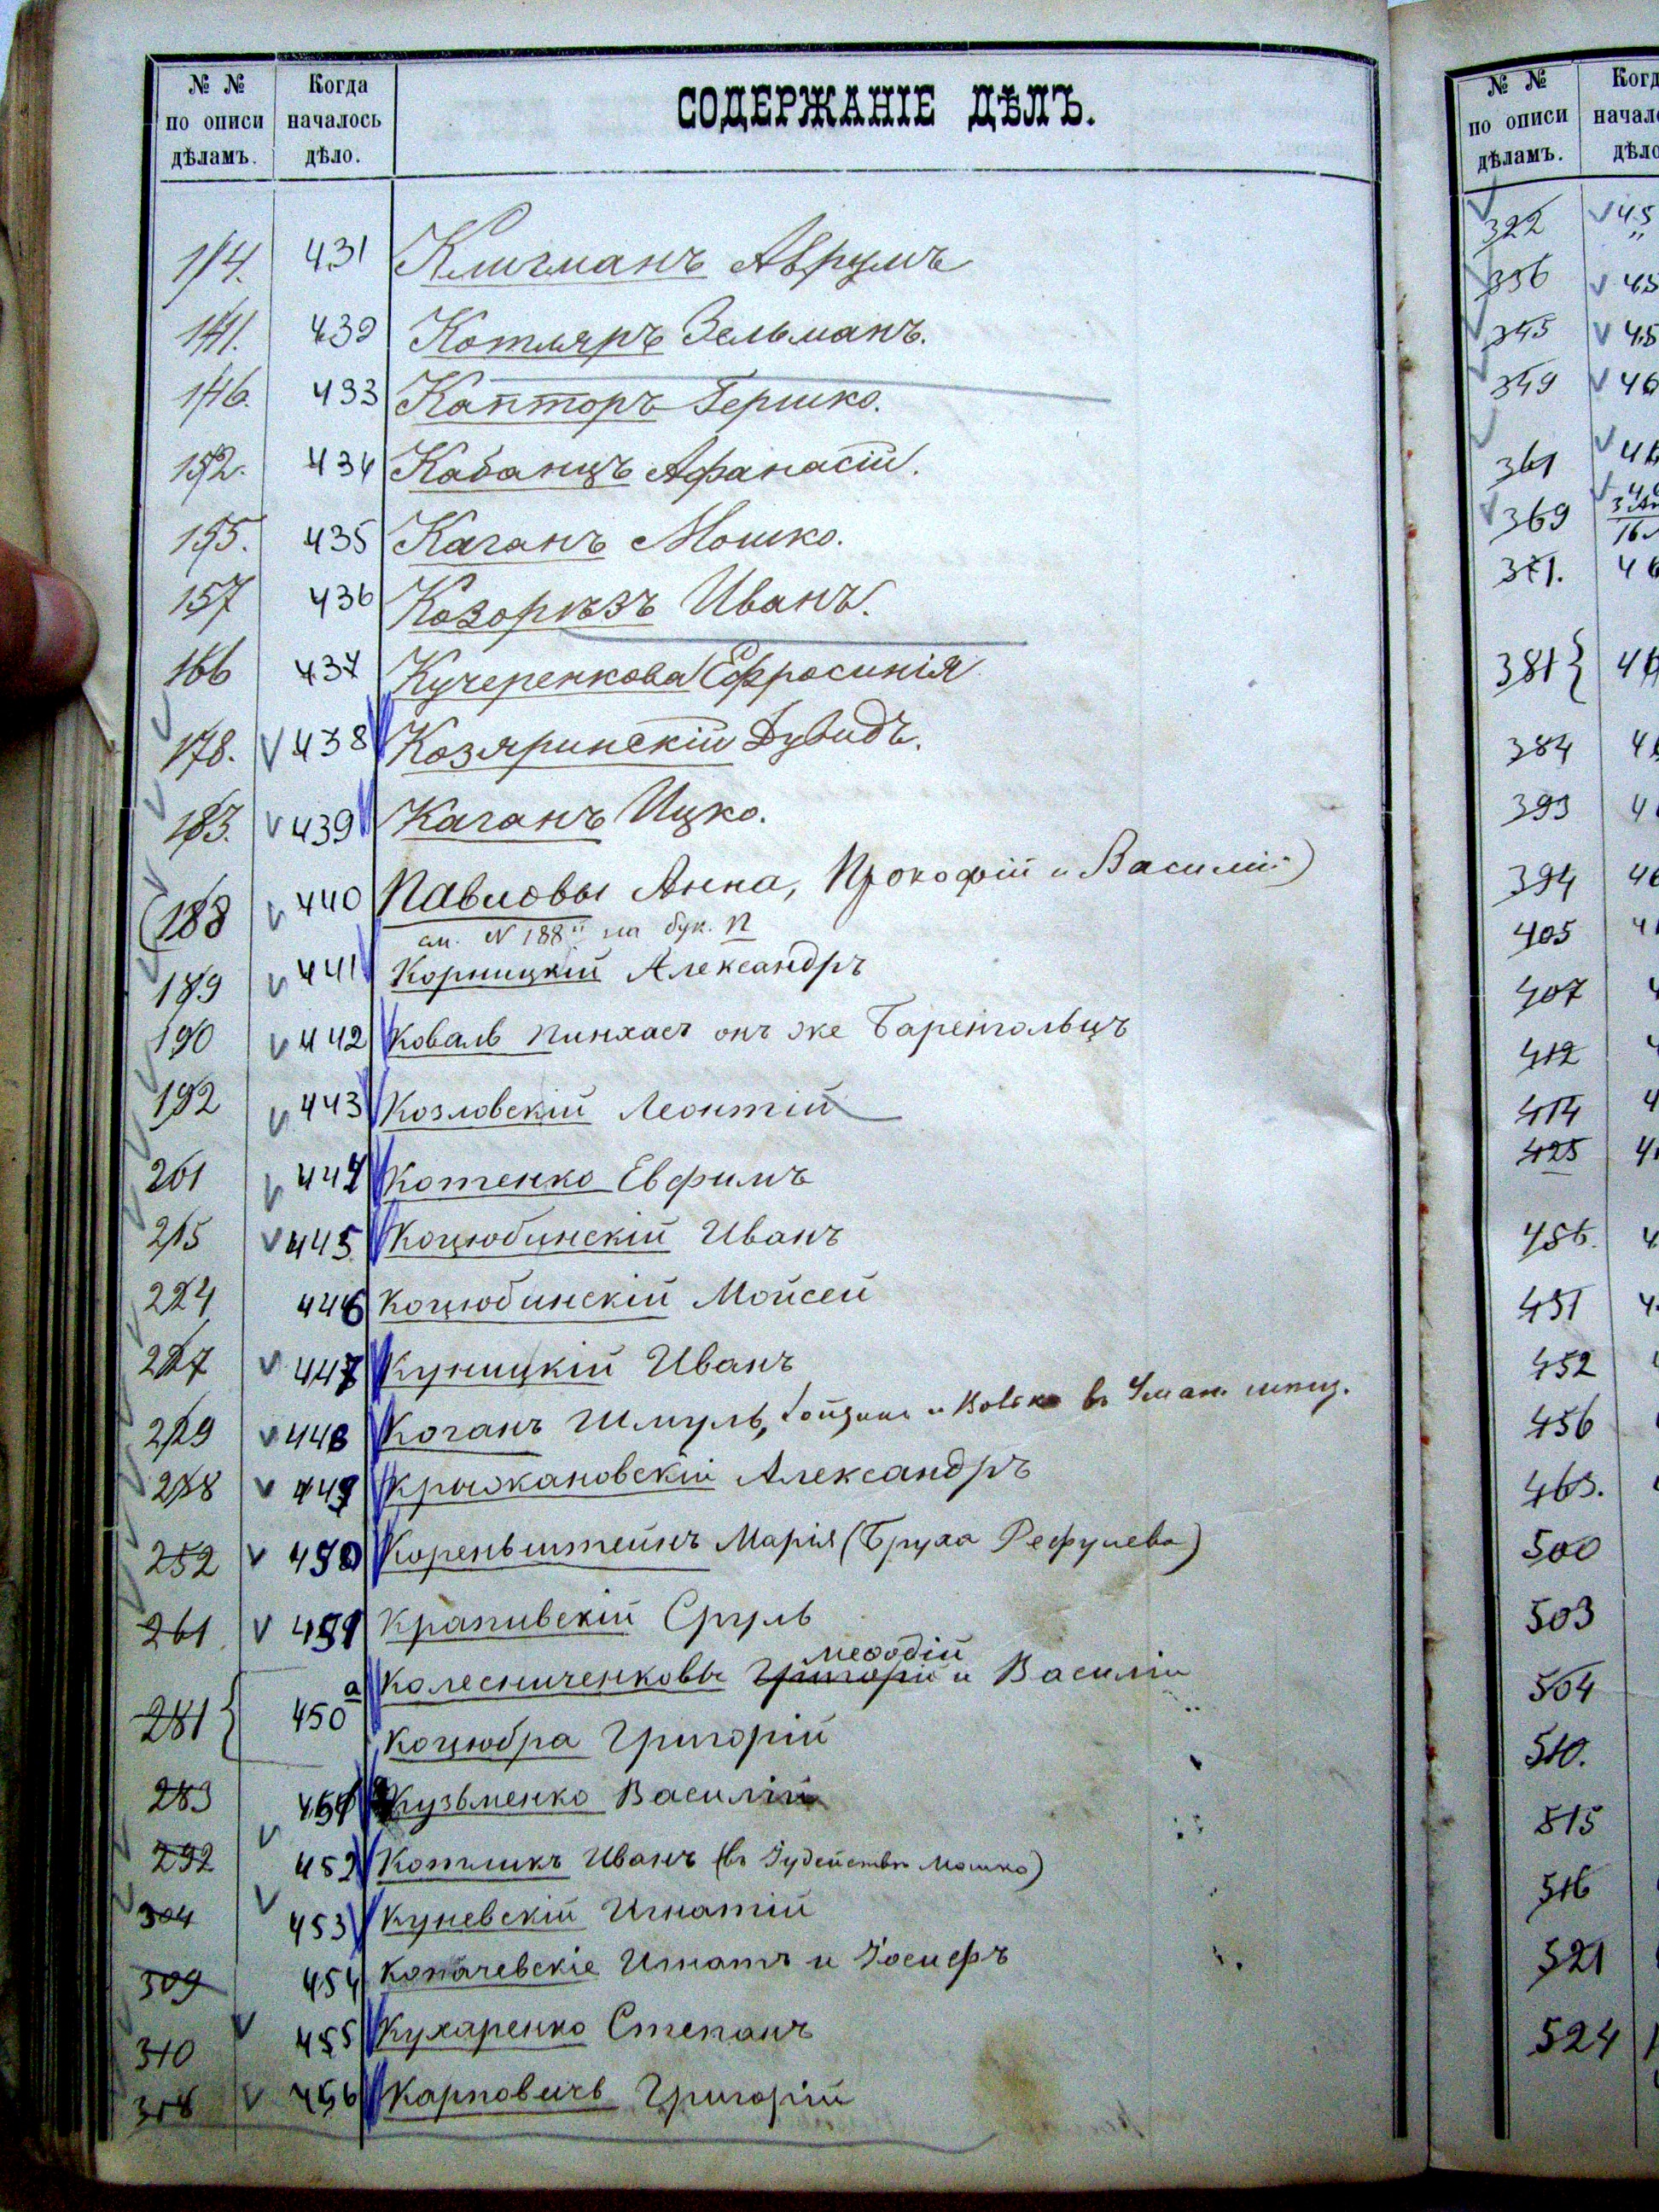 № № по описи дѣламъ. Когда началось дѣло. СОДЕРЖАНІЕ ДѢЛЪ.
114. 431 Клигманъ Аврумъ
141. 432 Котляръ Зельманъ.
146. 433 Капторъ Гершко.
152. 434 Кабанцъ Афанасій.
155. 435 Каганъ Мошко.
157 436 Козорѣзъ Иванъ.
166 437 Кучеренкова Ефросинія
178. 438 Козяринскій Дувидъ.
183. 439 Каганъ Ицко.
(188 440 Павловы Анна, Прокофій и Василій)
см. N 188 на бук. П
189 441 Корницкій Александръ
190 442 Коваль Пинхасъ онъ же Баренгольцъ
192 443 Козловскій Леонтій
201 444 Котенко Евфимъ
215 445 Коцюбинскій Иванъ
224 446 Коцюбинскій Мойсей
227 447 Куницкій Иванъ
229 448 Коганъ Шмуль, и Волько въ Уман.
238 449 Крыжановскій Александръ
252 450 Кореньштейнъ Марія (Бруха Рефулева)
261 451 Крапивскій Сруль
281 { 450 а Колесниченковы Григорій меѳодій и Василій
Коцюбра Григорій
283 451 Кузьменко Василій
292 452 Котликъ Иванъ (въ Іудействѣ Мошко)
304 453 Куневскій Игнатій
309 454 Копачевскіе Игнатъ и Іосифъ
310 455 Кухаренко Степанъ
318 456 Карповичъ Григорій
№ № по описи дѣламъ.
322
336
345
349
361
369
371.
381}
384
393
394
405
407
412
414
425
451
452
456
463.
500
503
504
510.
515
516
521
524